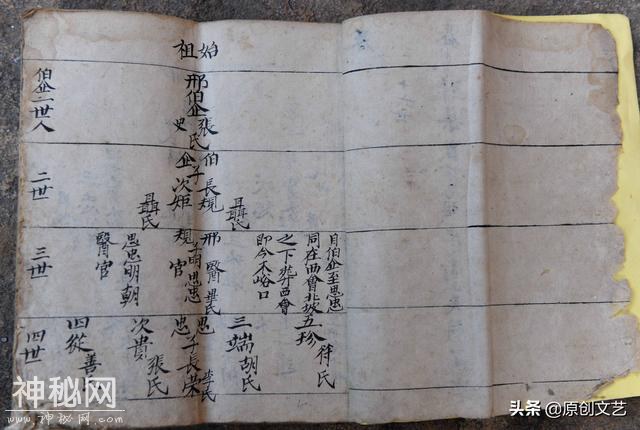 始祖
邢伯企張氏
史
伯企二世人
二世
企子
伯長規聶氏
次矩聶氏
三世
邢規子明思忠
醫官
思忠明朝
醫官
自伯企至思忠
同在西會北坡
之下葬西會
即今木峪口
四世
思忠子長榮李氏
次貴張氏
三端胡氏
四從善氏
五珍符氏
神秘网
www.shenmiwang.com
头条 @原创文艺